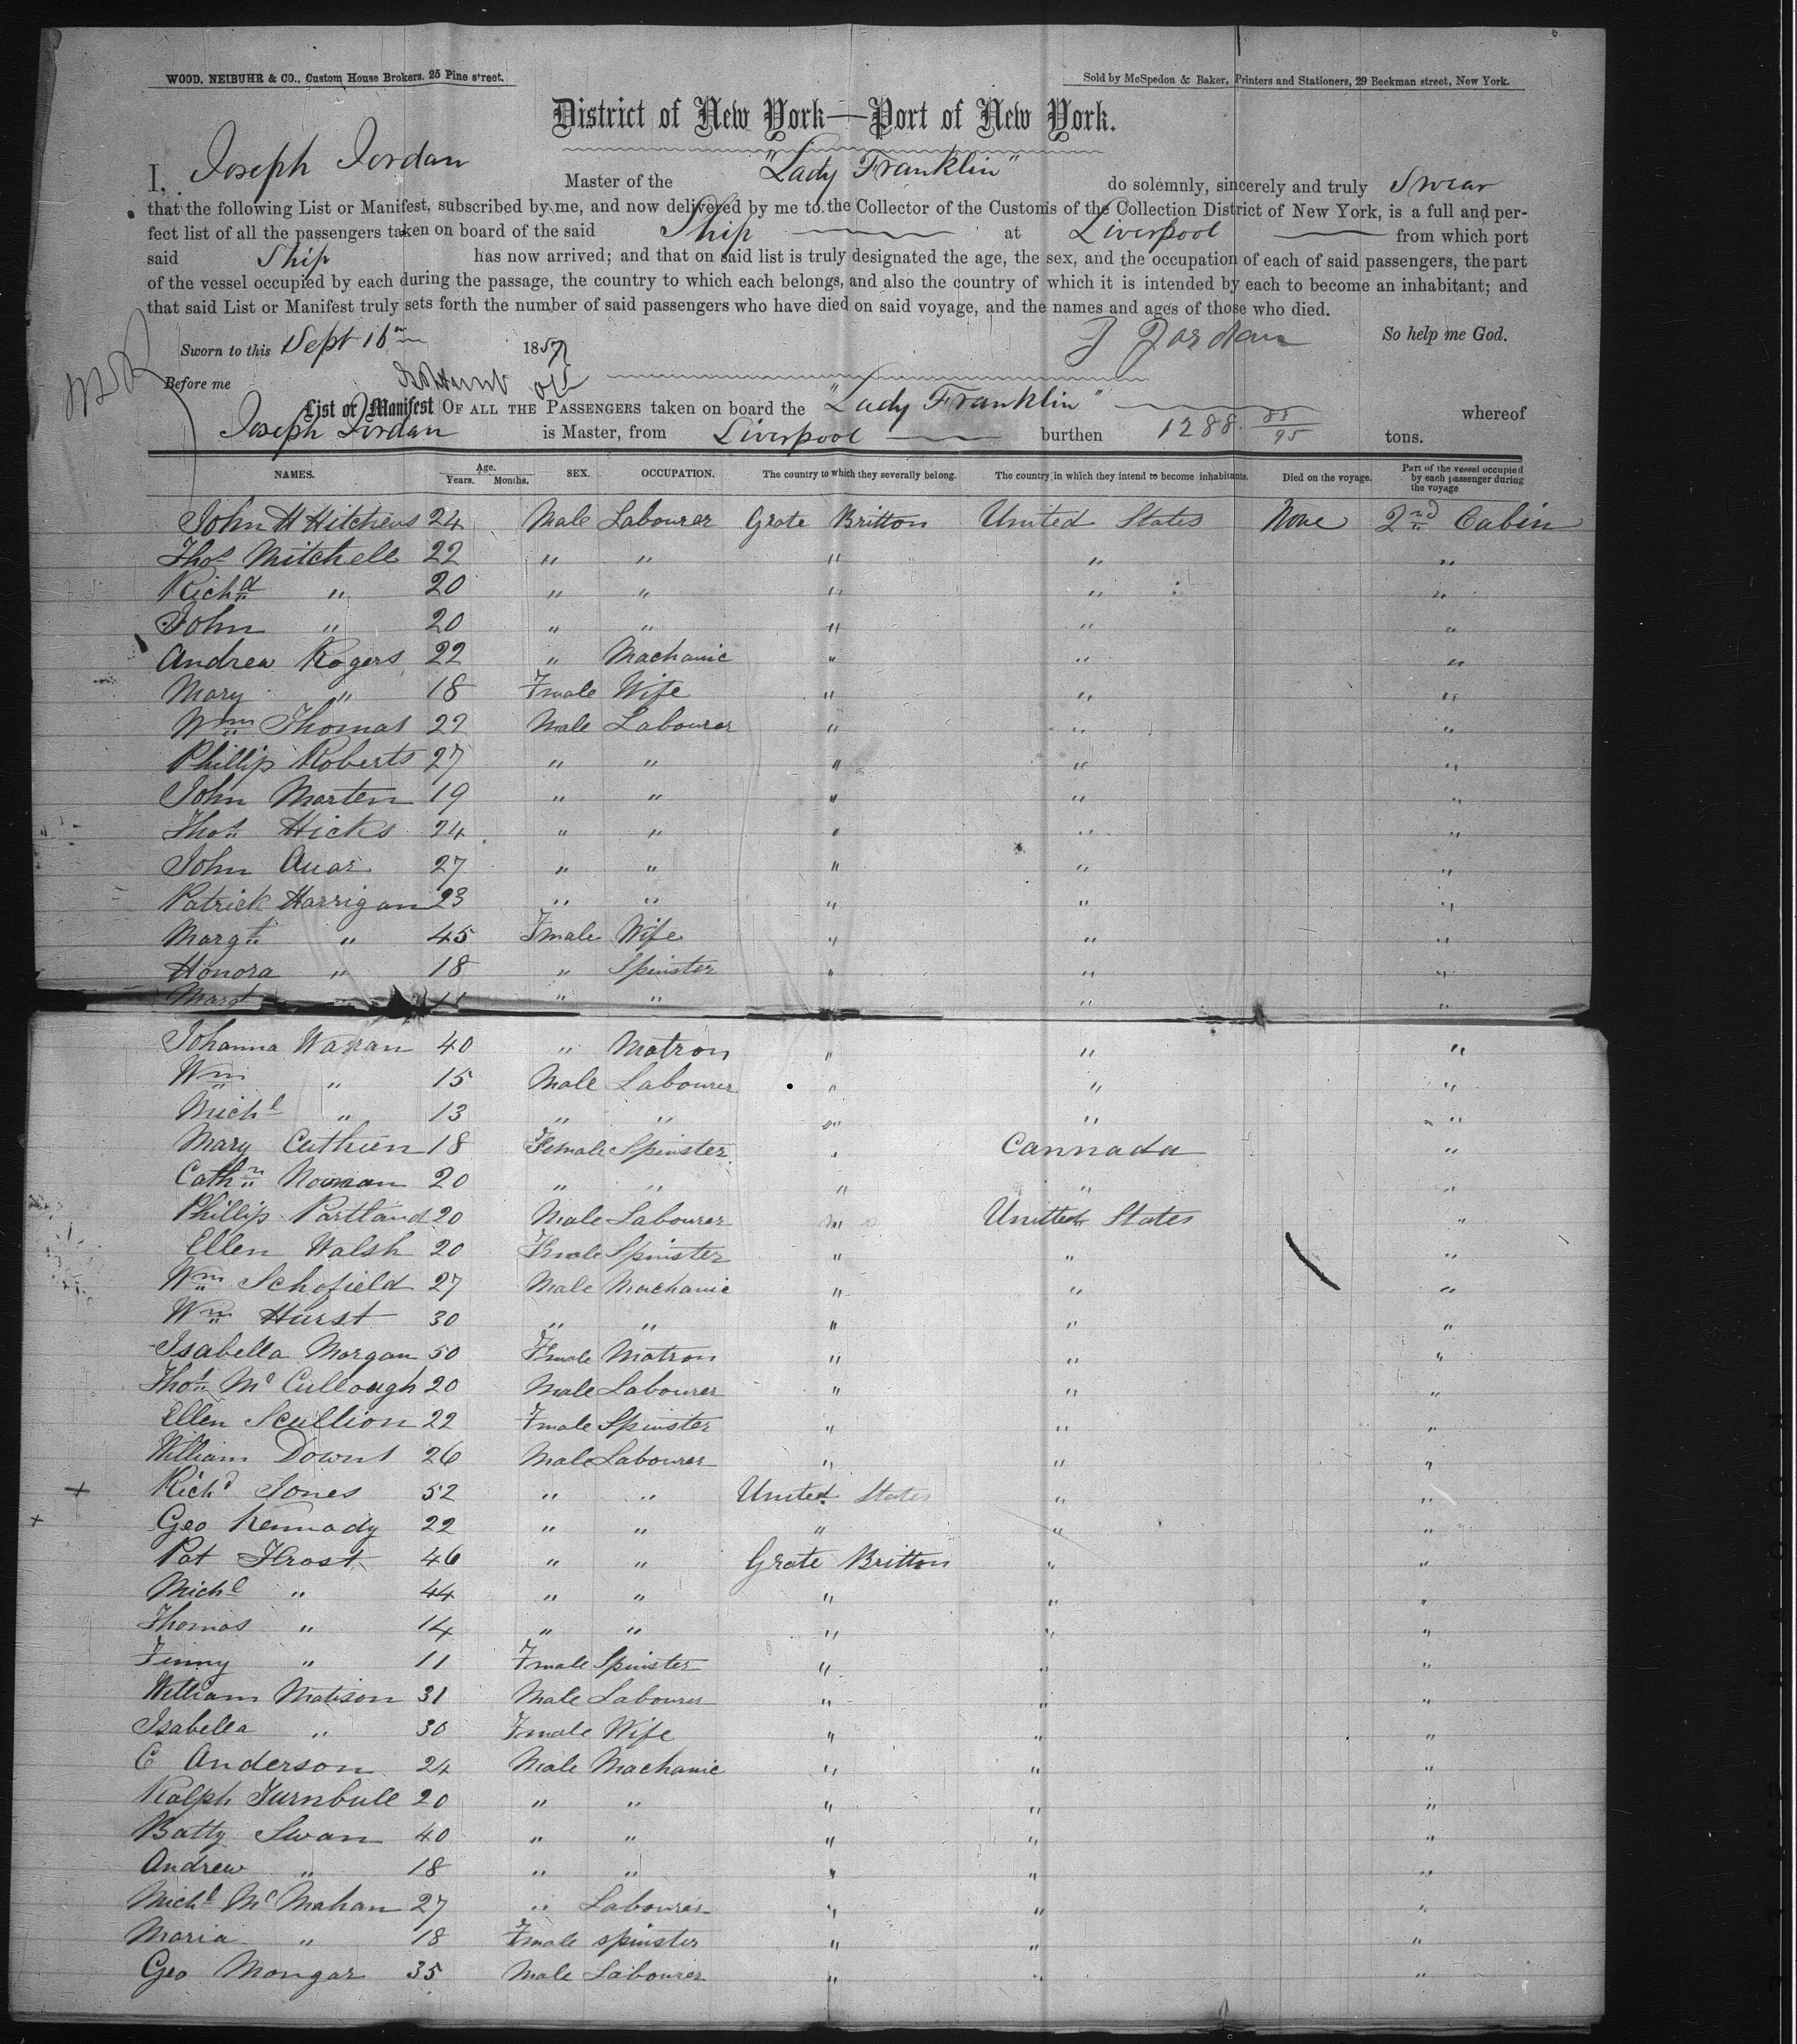 WOOD, NEIBUHR & CO., Custom House Brokers. 25 Pine street.
Sold by McSpedon & Baker, Printers and Stationers, 29 Beekman street, New York.
District of New York—Port of New York.
I, Joseph Jordan Master of the "Lady Franklin" do solemnly, sincerely and truly Swear
that the following List or Manifest, subscribed by me, and now delivered by me to the Collector of the Customs of the Collection District of New York, is a full and per-
fect list of all the passengers taken on board of the said Ship at Liverpool from which port
said Ship has now arrived; and that on said list is truly designated the age, the sex, and the occupation of each of said passengers, the part
of the vessel occupied by each during the passage, the country to which each belongs, and also the country of which it is intended by each to become an inhabitant; and
that said List or Manifest truly sets forth the number of said passengers who have died on said voyage, and the names and ages of those who died.
Sworn to this Sept 16 1857 J Jordan So help me God.
Before me
List or Manifest OF ALL THE PASSENGERS taken on board the "Lady Franklin" whereof
Joseph Jordan is Master, from Liverpool burthen 1288 85/95 tons.
NAMES. Age. Years. Months. SEX. OCCUPATION. The country to which they severally belong. The country in which they intend to become inhabitants. Died on the voyage. Part of the vessel occupied by each passenger during the voyage
John H Hitchens 24 Male Labourer Grate Britton United States None 2nd Cabin
Thos Mitchell 22 " " " " "
Richd " 20 " " " " "
John " 20 " " " " "
Andrew Rogers 22 " Machanic " " "
Mary " 18 Fmale Wife " " "
Wm Thomas 22 Male Labourer " " "
Phillip Roberts 27 " " " " "
John Marten 19 " " " " "
Thos Hicks 24 " " " " "
John 27 " " " " "
Patrick Harrigan 23 " " " " "
Margt " 45 Fmale Wife " " "
Honora " 18 " Spinster " " "
Margt " 11 " " " "
Johanna Warran 40 " Matron " " "
Wm " 15 Male Labourer " " "
Michl " 13 " " " " "
Mary 18 Female Spinster " Cannada "
Cathn 20 " " " " "
Phillip Partland 20 Male Labourer " United States "
Ellen Walsh 20 Fmale Spinster " " "
Wm Schofield 27 Male Machanic " " "
Wm Hurst 30 " " " " "
Isabella Morgan 50 Fmale Matron " " "
Thos Mc Cullough 20 Male Labourer " " "
Ellen Scullion 22 Fmale Spinster " " "
William Downs 26 Male Labourer " " "
+ Richd Jones 52 " " United States " "
+ Geo Kennady 22 " " " " "
Pat Frost 46 " " Grate Britton " "
Michl " 44 " " " " "
Thomas " 14 " " " " "
Finny " 11 Fmale Spinster " " "
William Matison 31 Male Labourer " " "
Isabella " 30 Fmale Wife " " "
C Anderson 24 Male Machanic " " "
Ralph Turnbull 20 " " " " "
Batty Swan 40 " " " " "
Andrew " 18 " " " " "
Michl Mc Mahan 27 " Labourer " " "
Maria " 18 Fmale Spinster " " "
Geo Mongar 35 Male Labourer " " "